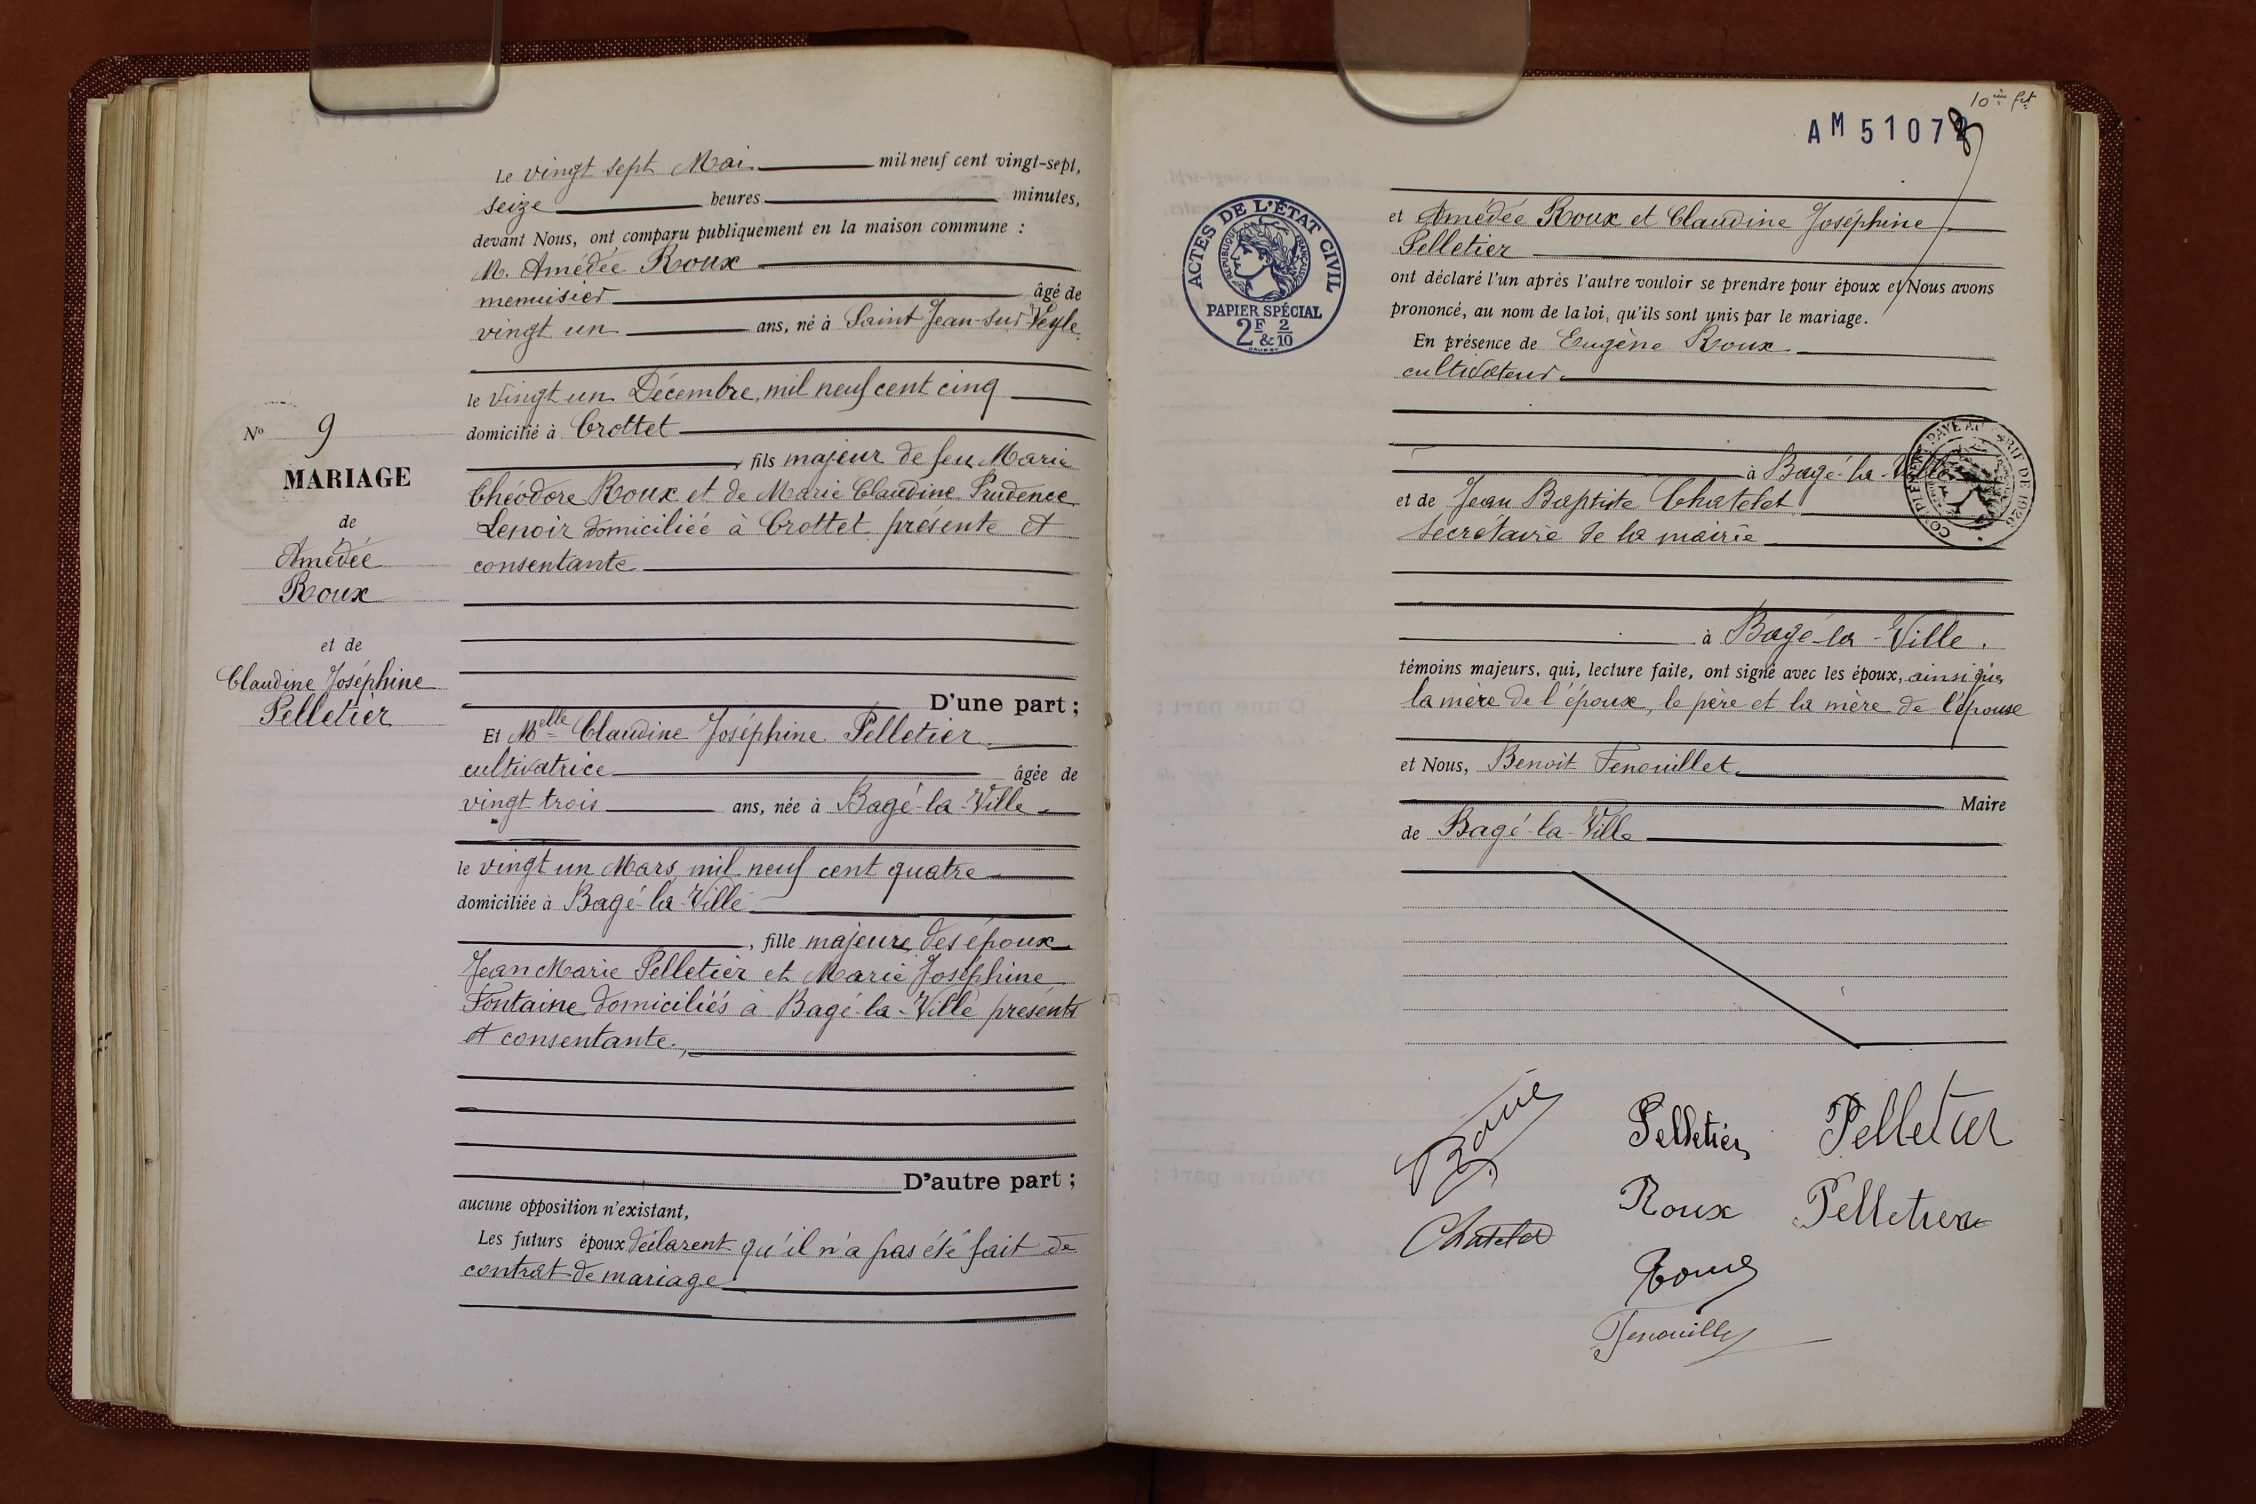 Le vingt sept Mai mil neuf cent vingt-sept,
seize heures minutes,
devant Nous, ont comparu publiquement en la maison commune :
M. Amédée Roux
menuisier âgé de
vingt un ans, né à Saint Jean-sur Veyle
le vingt un Décembre, mil neuf cent cinq
domicilié à Crottet
, fils majeur de feu Marie
Théodore Roux et de Marie Claudine Prudence
Lenoir domiciliée à Crottet présente et
consentante
D'une part ;
Et Melle Claudine Joséphine Pelletier
cultivatrice âgée de
vingt trois ans, née à Bagé-la-Ville
le vingt un Mars mil neuf cent quatre
domiciliée à Bagé-la-Ville
, fille majeure des époux
Jean Marie Pelletier et Marie Joséphine
Fontaine domiciliés à Bagé-la-Ville présents
et consentante.,
D'autre part ;
aucune opposition n'existant,
Les futurs époux déclarent qu'il n'a pas été fait de
contrat de mariage
No 9
MARIAGE
de
Amédée
Roux
et de
Claudine Joséphine
Pelletier
AM 5107
ACTES DE L'ÉTAT CIVIL
RÉPUBLIQUE FRANÇAISE
PAPIER SPÉCIAL
2F & 2/10
et Amédée Roux et Claudine Joséphine
Pelletier
ont déclaré l'un après l'autre vouloir se prendre pour époux et Nous avons
prononcé, au nom de la loi, qu'ils sont unis par le mariage.
En présence de Eugène Roux
cultivateur
à Bagé-la-Ville
et de Jean Baptiste Chatelet
secrétaire de la mairie
à Bagé-la-Ville.
témoins majeurs, qui, lecture faite, ont signé avec les époux, ainsi que
la mère de l'époux, le père et la mère de l'épouse
et Nous, Benoit Fenouillet
Maire
de Bagé-la-Ville
Roux
Pelletier
Pelletier
Roux
Pelletier
Chatelet
Roux
Fenouillet